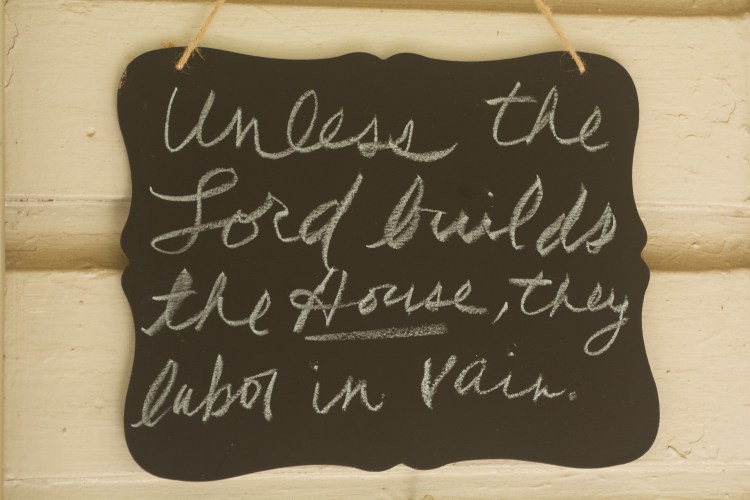 Unless the
Lord builds
the House, they
labor in vain.